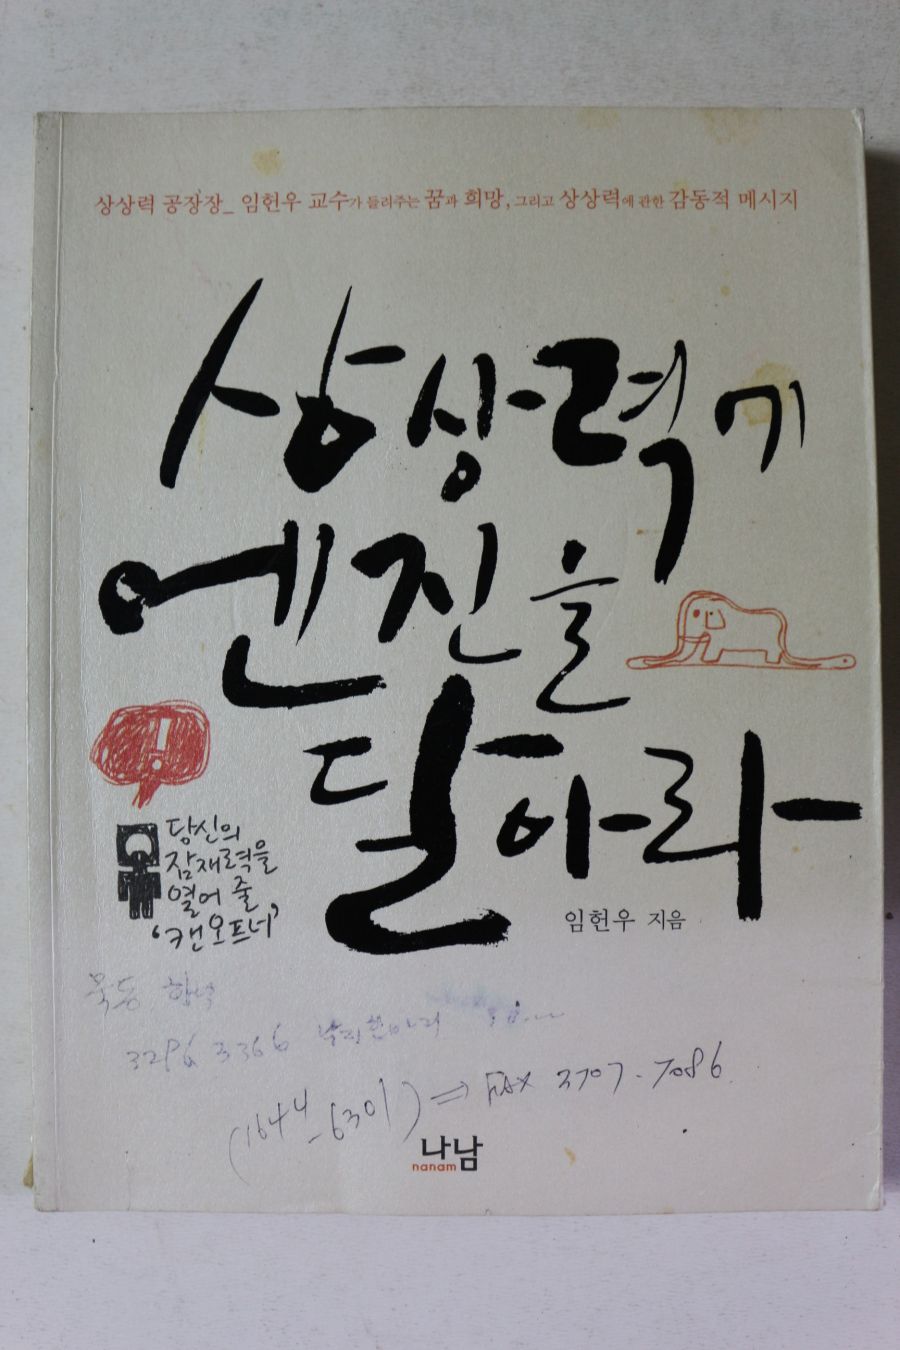 상상력 공장장_ 임헌우 교수가 들려주는 꿈과 희망, 그리고 상상력에 관한 감동적 메시지
상상력에
엔진을
달아라
!
당신의
잠재력을
열어 줄
‘캔오프너’
임헌우 지음
목동
3296 3366
(1644-6301) ⇒ FAX 2707-7086
나남
nanam